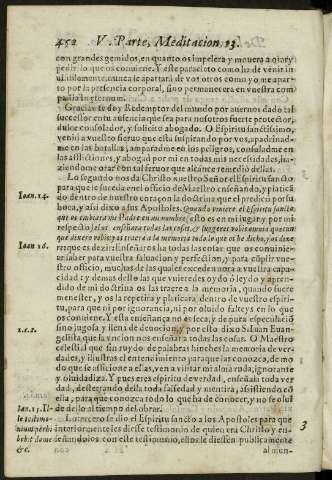 452 V. Parte, Meditacion. 13.
con grandes gemidos, en quanto os impelera y mouera a orar y
pedir lo que os conuiene. Y este paracleto como ha de venir in
uisiblemente, nunca se apartará de vos otros como yo me apar-
to por la presencia corporal, sino permanecera en vuestra com
pañia in eternum.
Gracias te doy Redemptor del mundo por auernos dado tal
successor en tu ausencia que sea para nosotros fuerte protector,
dulce consolador, y solicito abogado. O Espiritu sanctissimo,
venid a vuestro sieruo que esta suspirando por vos, apadrinad-
me en las batallas, amparadme en los peligros, consoladme en
las afflictiones, y abogad por mi en todas mis necessidades, ha-
ziendome orar con tal feruor que alcance remedio dellas.
Lo segundo nos da Christo nuestro Señor el Espiritu sancto,
Ioan. 14.
para que le suceda en el officio de Maestro enseñando, y platicá
do dentro de nuestro coraçon la doctrina que el predicó por su
boca, y assi dixo a sus Apostoles. Quando viniere el Espiritu sancto
que os embiara mi Padre en mi nombre, esto es en mi lugar y por mi
respecto,
Ioan 16.
saber para vuestra saluacion y perfection, y para cúplir vue-
stro officio, muchas de las quales exceden aora a vuestra capa-
cidad; y demas dello las que vuieredes oydo ò leydo y apren-
dido de mi doctrina os las traere a la memoria, quando fuere
menester, y os la repetira y platicara, dentro de vuestro espiri-
tu, para que ni por ignorancia, ni por oluido falteys en lo que
os conuiene. Y esta enseñança no es seca, y de pura especulació
sino jugosa y llena de deuocion,
gelista que la vncion nos enseñaria todas las cosas. O Maestro
celestial que sin ruydo de palabras hinches la memoria de ver-
dades, y illustras el entendimiento para que las conozca, de mo-
do que se afficione a ellas, ven a visitar mi alma ruda, ignorante
y oluidadiza. Y pues eres espiritu de verdad, enseñale toda ver
dad, desterrando della toda falsedad y mentira,
ella, para que conozca todo lo que ha de conocer, y no se olui
de dello al tiempo del obrar.
Lo tercero se dio el Espiritu sancto a los Apostoles para que
interiormente les diesse testimonio de quien era Christo y en-
señandolos con este testimonio, ellos le diessen publicamente
&c.
al mun-
3